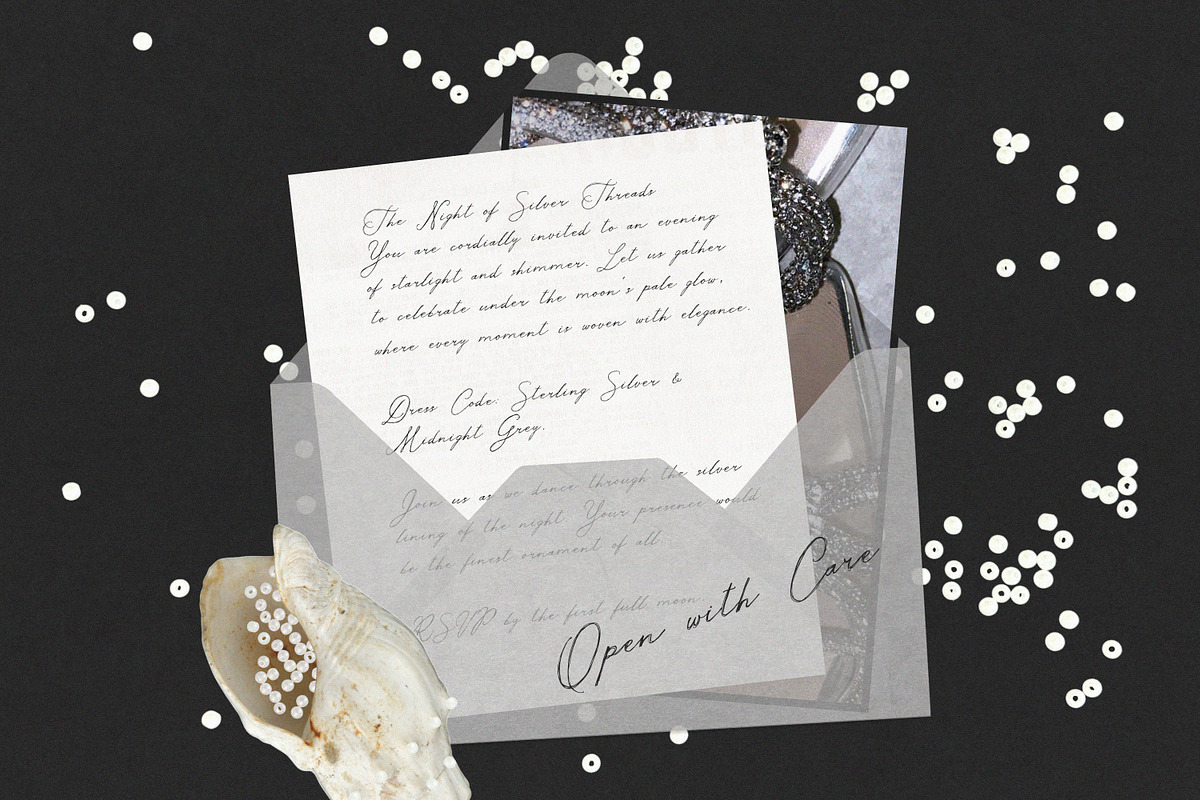 The Night of Silver Threads
You are cordially invited to an evening
of starlight and shimmer. Let us gather
to celebrate under the moon's pale glow,
where every moment is woven with elegance.
Dress Code: Sterling Silver &
Midnight Grey.
Join us as we dance through the silver
lining of the night. Your presence would
be the finest ornament of all.
RSVP by the first full moon.
Open with Care